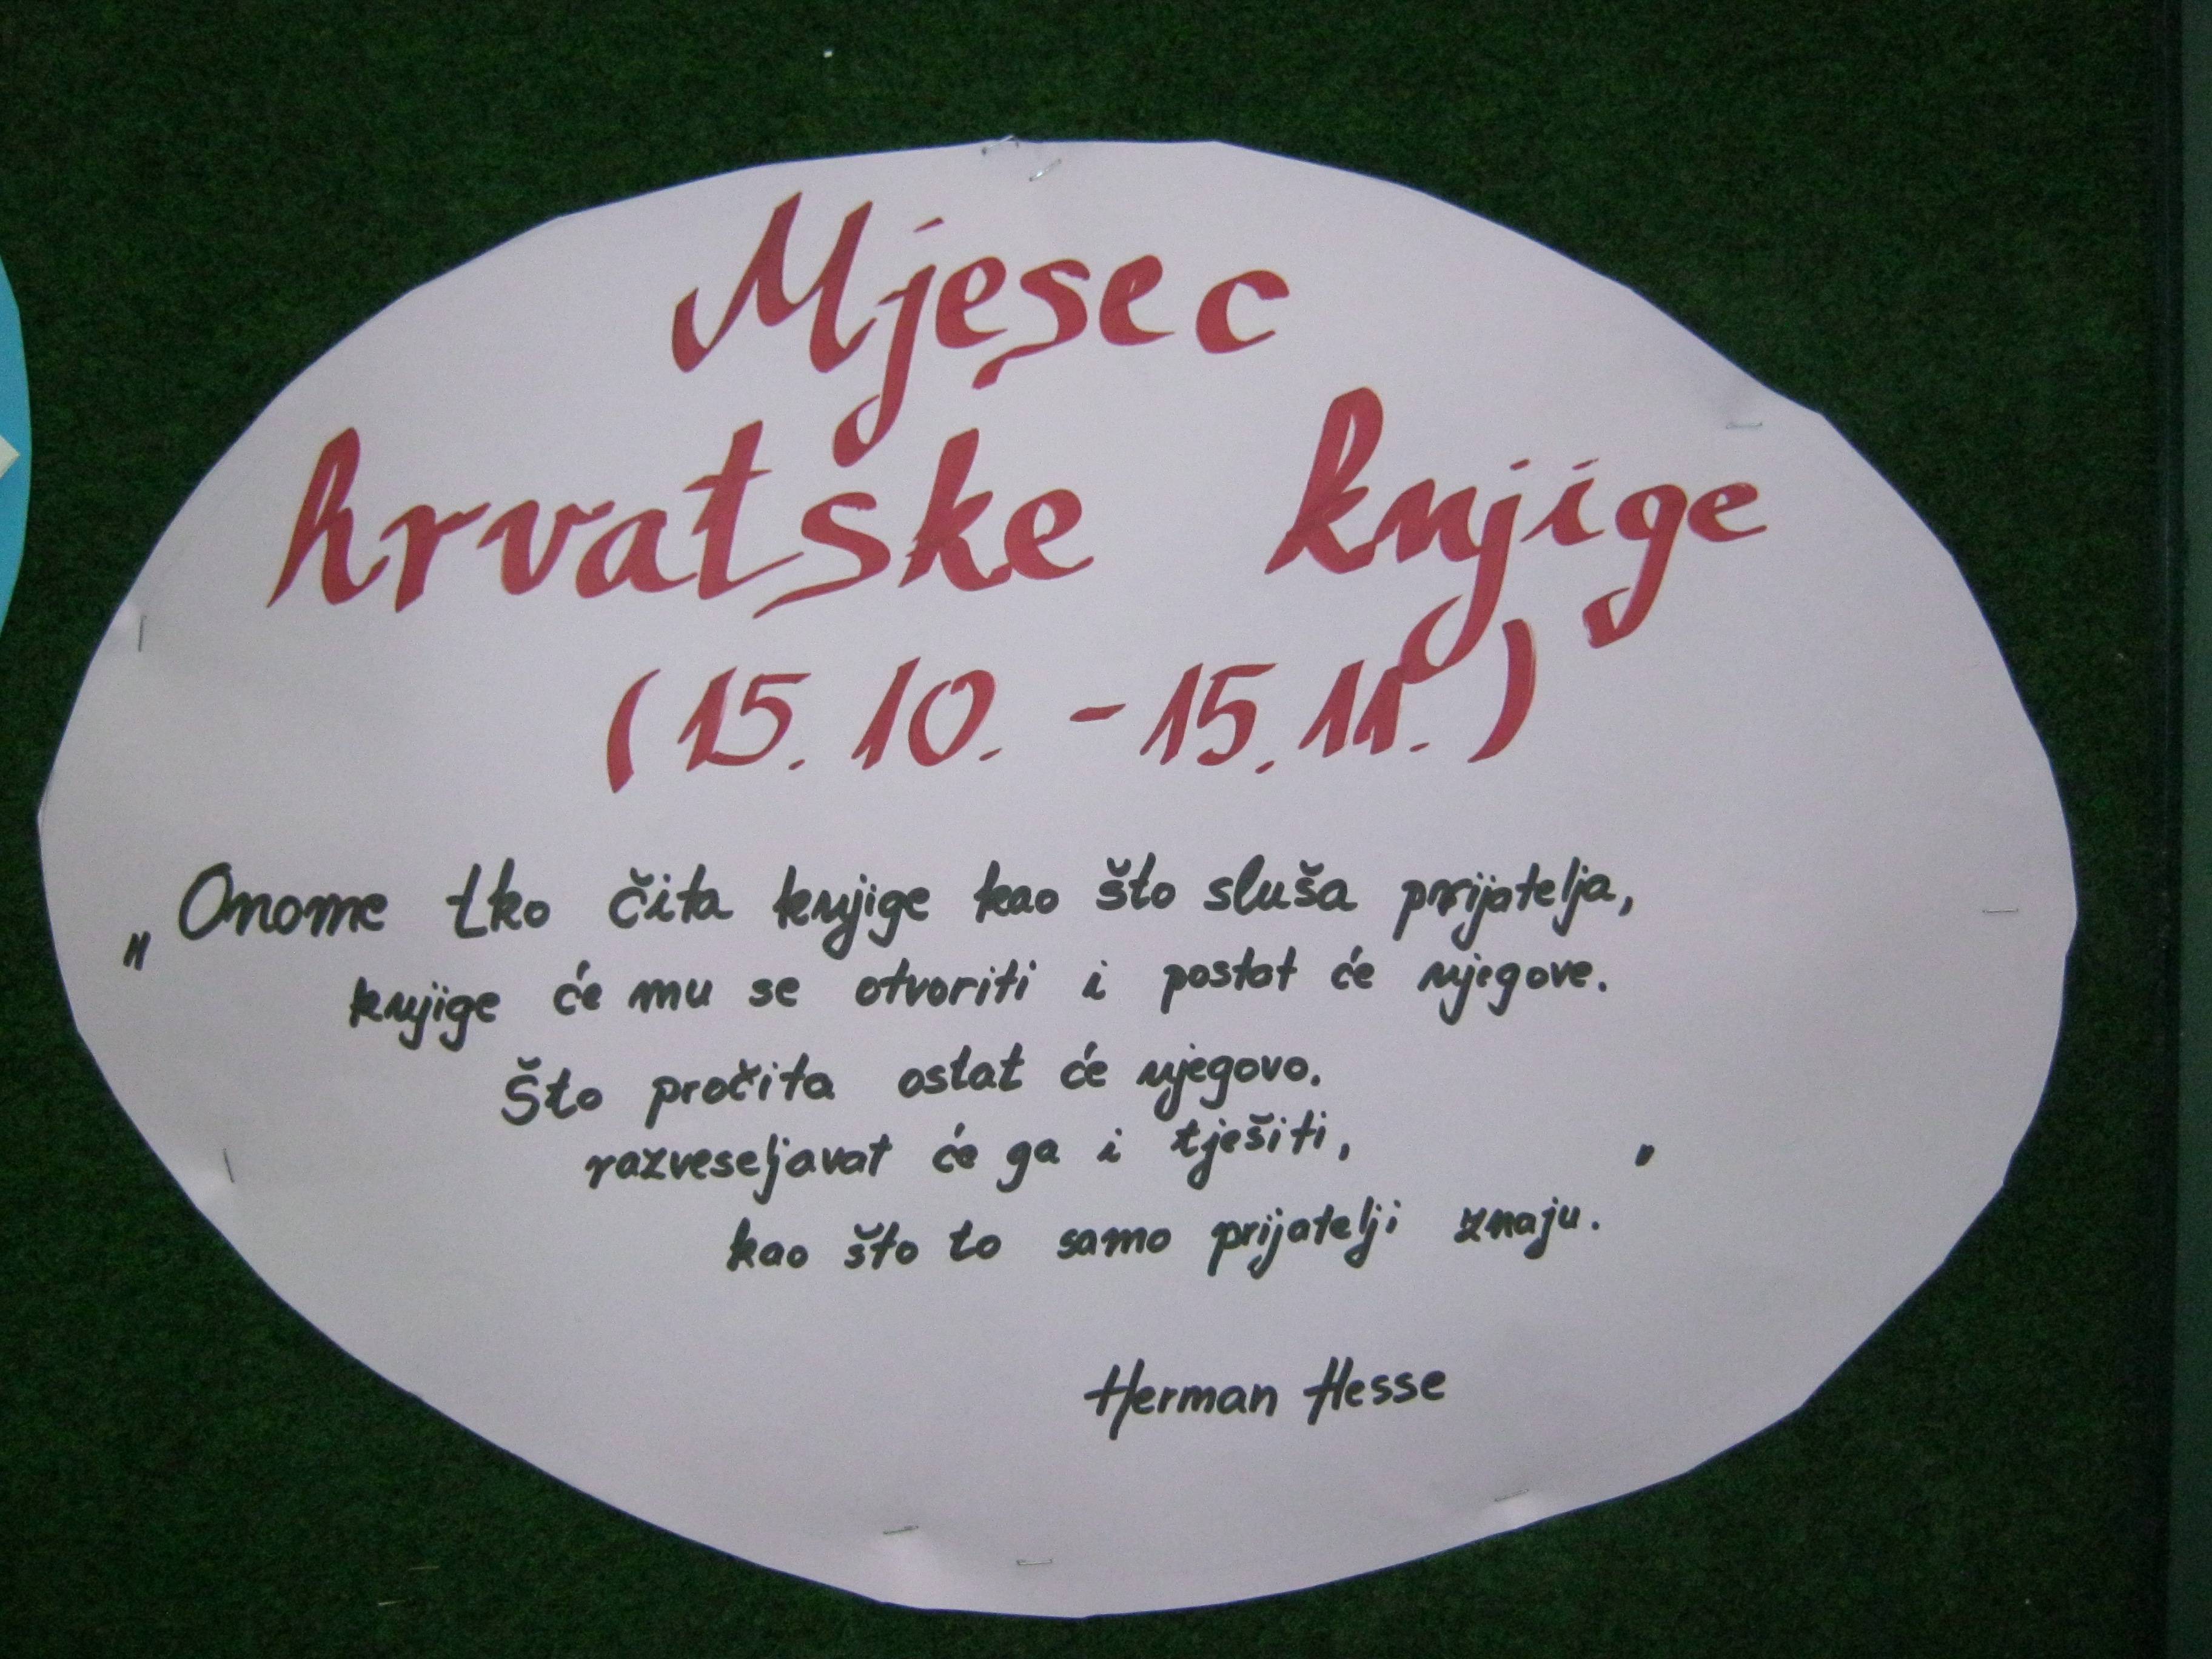 Mjesec
hrvatske knjige
(15. 10. - 15. 11.)
„Onome tko čita knjige kao što sluša prijatelja,
knjige će mu se otvoriti i postat će njegove.
Što pročita ostat će njegovo.
razveseljavat će ga i tješiti,
kao što to samo prijatelji znaju."
Herman Hesse